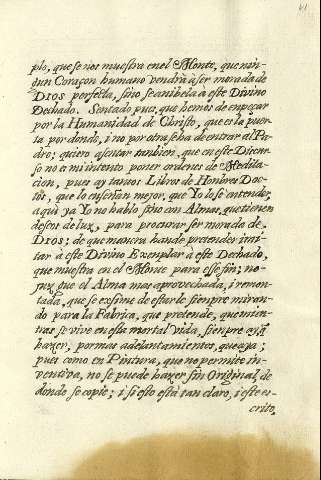 41
plo, que se nos muestra en el Monte, que nin-
gun Coraçon humano vendrà à ser morada de
DIOS perfecta, sino se anibela à este Divino
Dechado. Sentado pues, que hemos de empeçar
por la Humanidad de Christo, que es la puer-
ta por donde, i no por otra se ha de entrar al Pa-
dre; quiero asentar tanbien, que en este Discur-
so no es mi intento poner ordenes de Medita-
cion, pues ay tantos Libros de Honbres Doc-
tos, que lo enseñan mejor, que Yo lo sè entender,
aqui ya Yo no hablo sino con Almas, que tienen
deseos de luz, para procurar ser morada de
DIOS; de que manera han de pretender imi-
tar à este Divino Exenplar à este Dechado,
que muestra en el Monte para esse fin; no
juz que el Alma mas aprovechada, i remon-
tada, que se exsime de estarle sienpre miran-
do para la Fabrica, que pretende, que mien-
tras se vive en esta mortal Vida, sienpre ay q̃
hazer, por mas adelantamientos, que aya;
pues como en Pintura, que no permite in-
ventiva, no se puede hazer sin Original, de
donde se copie; i si esto està tan claro, i este es-
crito,